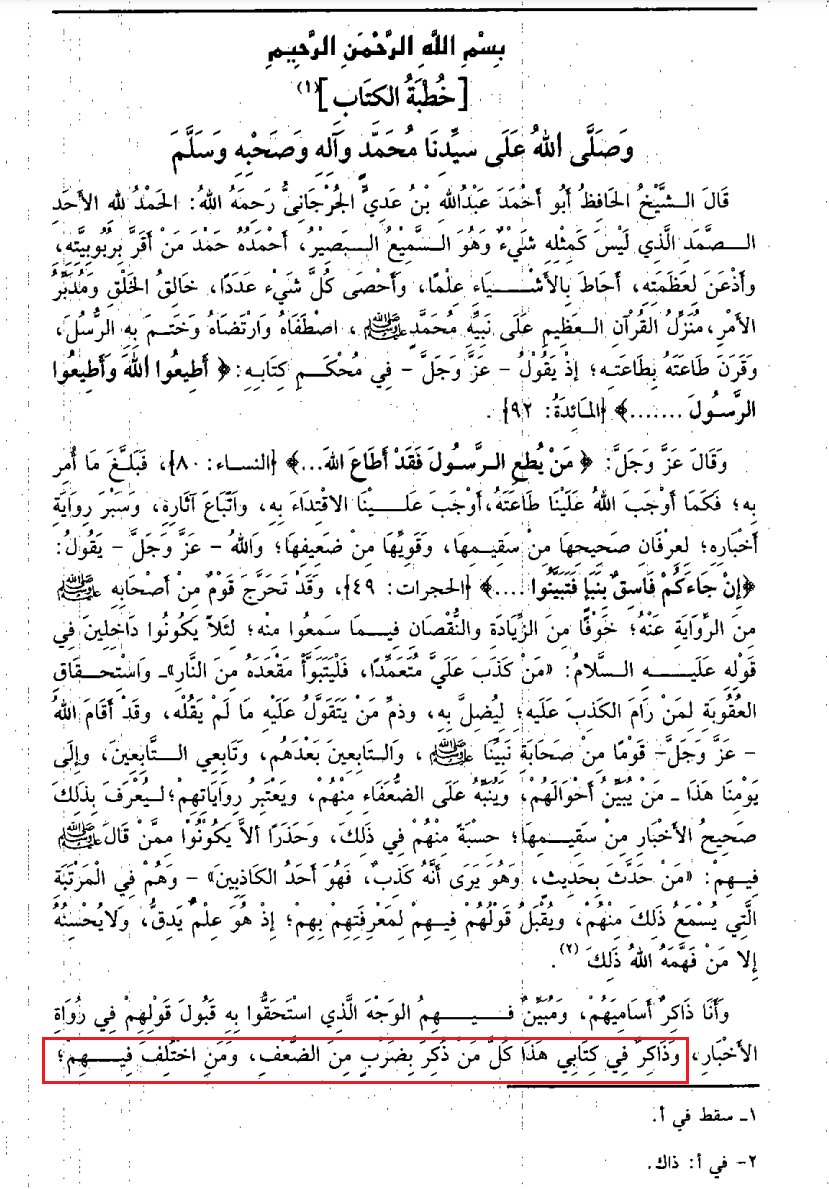 بِسْمِ اللَّهِ الرَّحْمَنِ الرَّحِيمِ
[خُطْبَةُ الكتَابِ](١)
وَصَلَّى اللهُ عَلَى سيِّدِنَا مُحَمَّدٍ وَآلِهِ وَصَحْبِهِ وَسَلَّمَ
قَالَ الشَّيْخُ الحَافِظُ أَبُو أَحْمَدَ عَبْدُاللهِ بْنُ عَدِيٍّ الجُرْجَانِىُّ رَحِمَهُ اللهُ: الحَمْدُ للهِ الأَحَدِ
الصَّمَدِ الَّذِي لَيْسَ كَمِثْلِهِ شَيْءٌ وَهُوَ السَّمِيعُ البَصِيرُ، أَحْمَدُهُ حَمْدَ مَنْ أَقَرَّ بِرُبُوبِيَّتِهِ،
وأَذْعَنَ لِعَظَمَتِهِ، أَحَاطَ بِالأَشْيَاءِ عِلْمًا، وَأَحْصَى كُلَّ شَيْء عَدَدًا، خَالِقُ الخَلْقِ وَمُدَبِّرُ
الأَمْرِ، مُنَزِّلُ القُرْآنِ العَظِيمِ عَلَى نَبِيِّهِ مُحَمَّدٍ ﷺ، اصْطَفَاهُ وَارْتَضَاهُ وَخَتَمَ بِهِ الرُّسُلَ،
وَقَرَنَ طَاعَتَهُ بِطَاعَتِهِ؛ إِذْ يَقُولُ - عَزَّ وَجَلَّ - فِي مُحْكَمِ كِتَابِهِ: ﴿ أَطِيعُوا اللهَ وَأَطِيعُوا
الرَّسُولَ .......﴾ {المَائدَةُ: ٩٢} .
وَقَالَ عَزَّ وَجَلَّ: ﴿ مَنْ يُطعِ الرَّسُولَ فَقَدْ أَطَاعَ اللهَ...﴾ {النساء: ٨٠}، فَبَلَّغَ مَا أُمِر
بِه؛ فَكَمَا أَوْجَبَ اللهُ عَلَيْنَا طَاعَتَهُ،أَوْجَبَ عَلَيْنَا الاقْتِدَاءَ بِهِ، وَاتِّبَاعَ آثَارِهِ، وَسَبْرَ رِوَايَةِ
أَخْبَارِهِ؛ لِعرفَانِ صَحِيحِهَا مِنْ سَقِيمِهَا، وَقَوِيِّهَا مِنْ ضَعِيفِهَا؛ وَاللهُ - عَزَّ وَجَلَّ - يَقُولُ:
﴿إِنْ جَاءَكُمْ فَاسِقٌ بِنَبَإٍ فَتَبَيَّنُوا ....﴾ {الحجرات: ٤٩}، وَقَدْ تَحَرَّجَ قَوْمٌ مِنْ أَصْحَابِهِ ﷺ
مِنَ الرِّوَايَةِ عَنْهُ؛ خَوْفًا مِنَ الزِّيَادَةِ والنُّقْصَانِ فِيمَا سَمِعُوا مِنْه؛ لِئَلاَّ يَكُونُوا دَاخِلِينَ فِي
قَوْلِهِ عَلَيْهِ السَّلامُ: «مَنْ كَذَبَ عَلَيَّ مُتَعَمِّدًا، فَلْيَتَبَوَّأْ مَقْعَدَهُ مِنَ النَّارِ»ـ وَاسْتِحْقَاقِ
العُقُوبَةِ لِمَنْ رَامَ الكَذِبَ عَلَيهِ؛ لِيُضلَّ بِهِ، وذمِّ مَنْ يَتَقَوَّلُ عَلَيْهِ مَا لَمْ يَقُلْه، وقد أَقَامَ اللهُ
- عَزَّ وَجَلَّ- قَوْمًا مِنْ صَحَابَةِ نَبِيِّنَا ﷺ ، وَالتابِعينَ بَعْدَهُم، وَتَابِعِي التَّابِعِينَ، وإِلَى
يَوْمِنَا هَذَا ـ مَنْ يُبَيِّنُ أَحْوَالَهُمْ، وَيُنَبِّهُ عَلَى الضُّعَفَاءِ مِنْهُمْ، ويَعْتَبِرُ رِوَايَاتِهِمْ؛لِيُعْرَفَ بِذَلِكَ
صَحِيحُ الأَخْبَارِ مِنْ سَقِيمِهَا؛ حِسْبَةً مِنْهُمْ فِي ذَلِكَ، وَحَذَرًا أَلاَّ يَكُونُوا مِمَّنْ قَالَ ﷺ
فِيهِمْ: «مَنْ حَدَّثَ بِحَدِيثٍ، وَهُوَ يَرَى أَنَّهُ كَذِبٌ، فَهُوَ أَحَدُ الكَاذِبِينَ» - وَهُمْ فِي الْمَرْتَبَةِ
الَّتِي يُسْمَعُ ذَلِكَ مِنْهُمْ، وَيُقْبَلُ قَوْلُهُمْ فِيهِمْ لِمَعْرِفَتِهِمْ بِهِمْ؛ إِذْ هُوَ عِلْمٌ يَدِقُّ، وَلاَيُحْسِنُهُ
إِلا مَنْ فَهَّمَهُ اللهُ ذَلِكَ (٢).
وَأَنَا ذَاكِرٌ أَسَامِيَهُمْ، وَمُبَيِّنٌ فِيهِمُ الوَجْهَ الَّذِي استَحَقُّوا بِهِ قَبُولَ قَولِهِمْ فِي رُوَاةِ
الأَخْبَارِ، وَذَاكِرٌ فِي كِتَابِي هَذَا كُلَّ مَنْ ذُكِرَ بِضَرْبٍ مِنَ الضَّعْفِ، وَمَنِ اخْتُلِفَ فِيهِمْ؛
١ـ سقط في أ.
٢- في أ: ذاك.